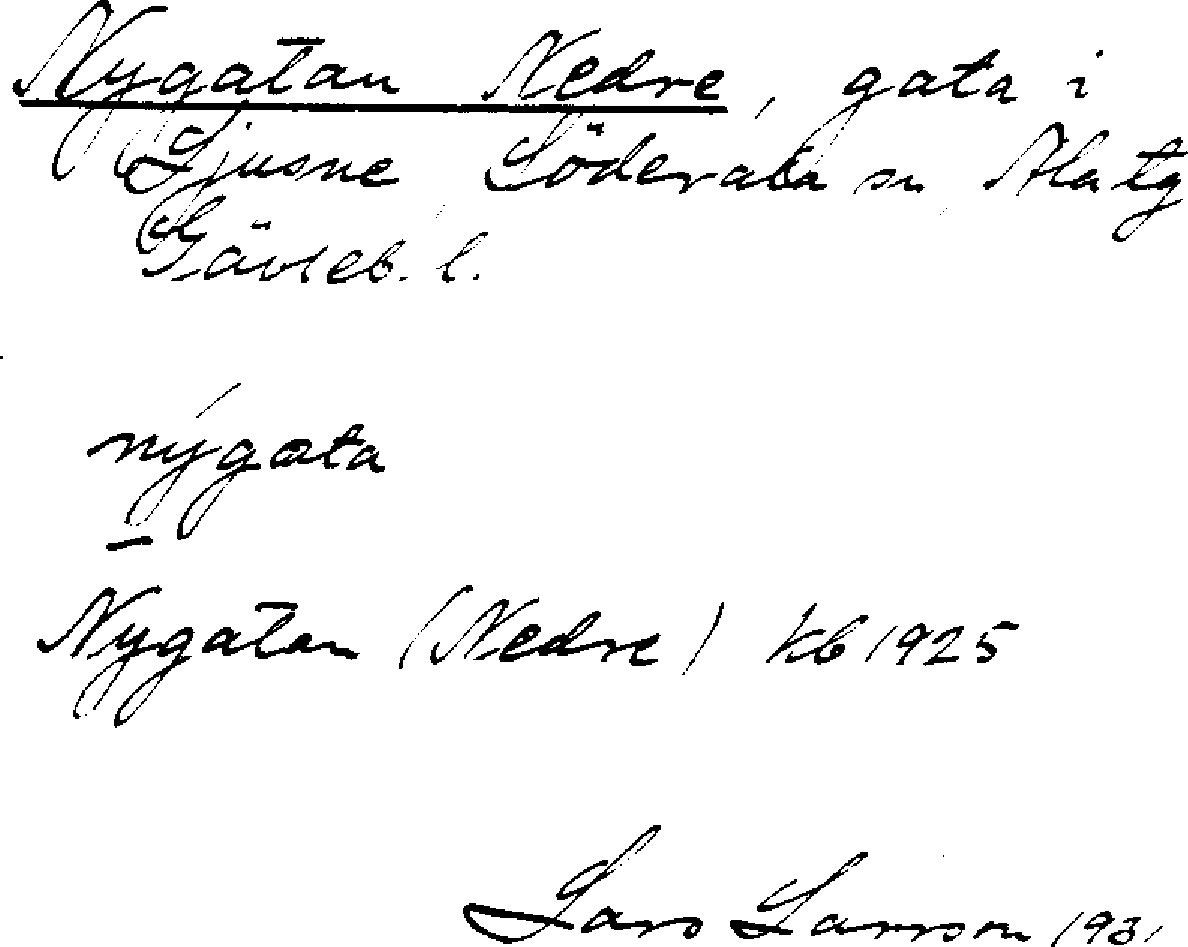 Nygatan Nedre, gata i
Ljusne Söderala sn, Ala tg
Gävleb. l.
nýgata
Nygatan (Nedre) kb 1925
Lars Larsson 193